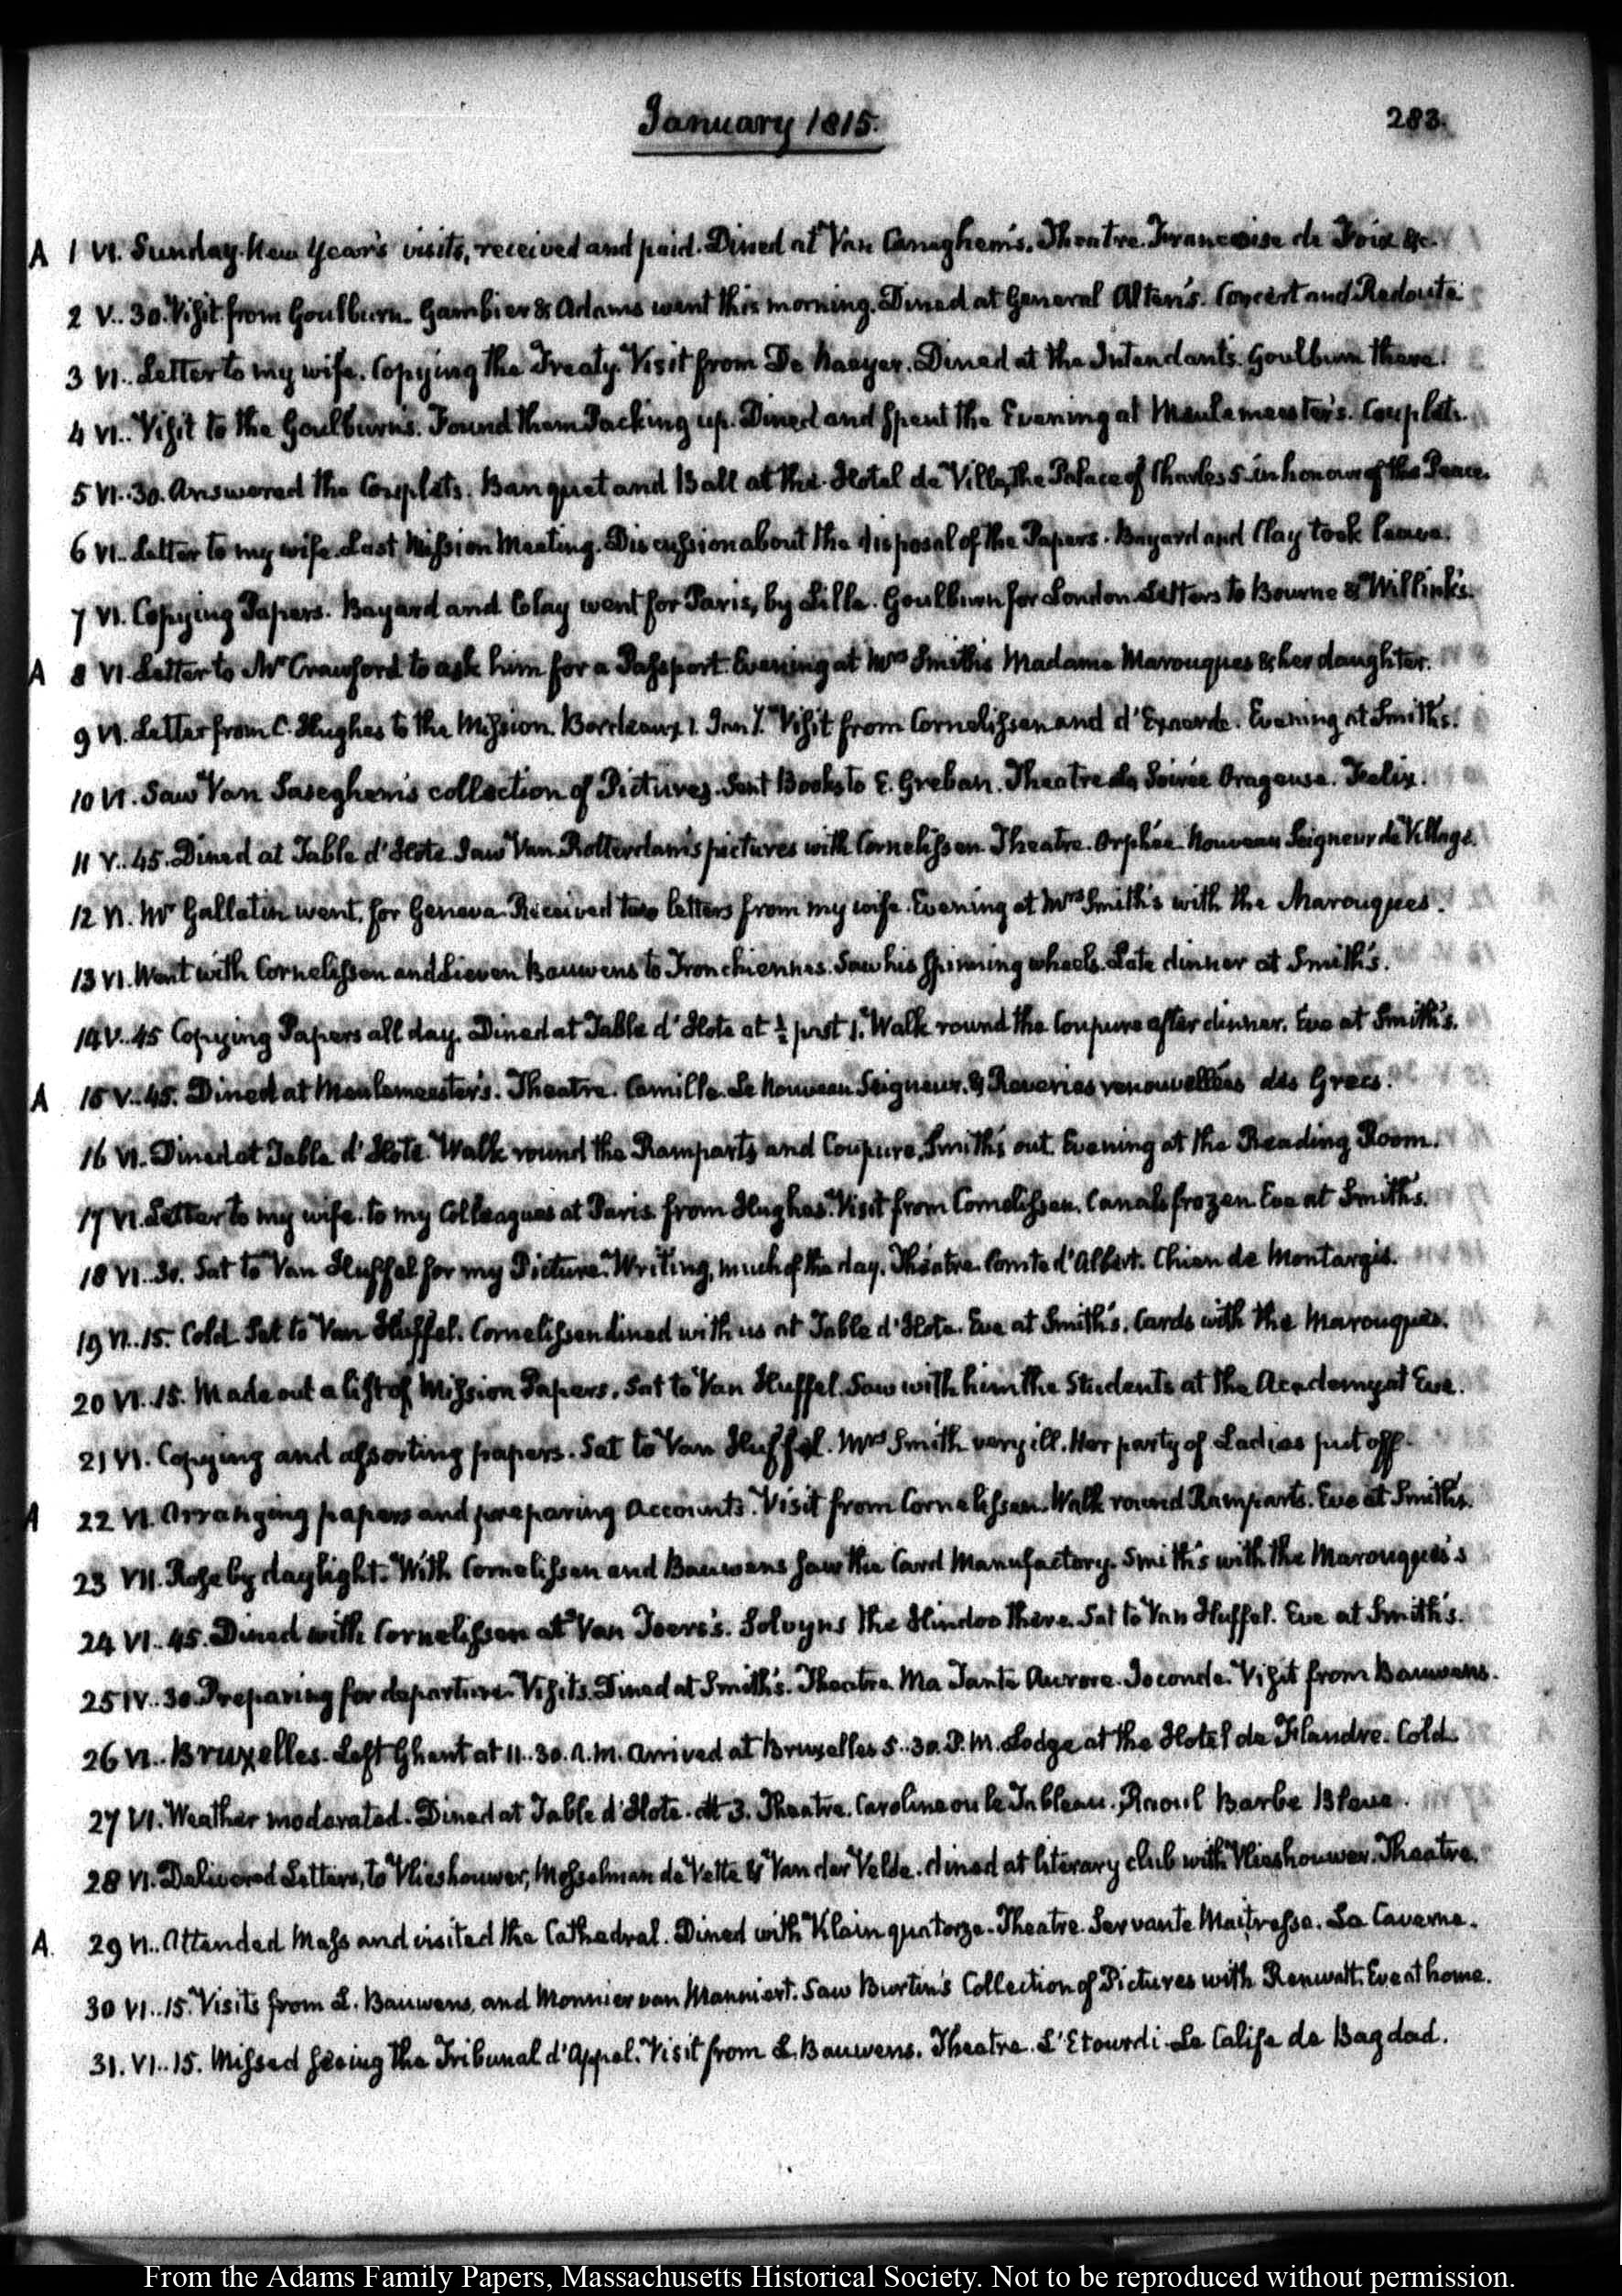 January 1815.
283.
A 1 VI. Sunday. New Year's visits, received and paid. Dined at Van Caneghem's. Theatre. Francoise de Foix &c.
2 V..30. Visit from Goulburn. Gambier & Adams went this morning. Dined at General Alten's. Concert and Redoute
3 VI.. Letter to my wife. Copying the Treaty. Visit from De Naeyer. Dined at the Intendant's. Goulburn there.
4 VI.. Visit to the Goulburn's. Found them Packing up. Dined and spent the Evening at Meulemeester's. Couplets.
5 VI..30. Answered the Couplets. Banquet and Ball at the Hotel de Ville, the Palace of Charles 5. in honour of the Peace.
6 VI.. Letter to my wife. Last Mission Meeting. Discussion about the disposal of the Papers. Bayard and Clay took leave.
7 VI. Copying Papers. Bayard and Clay went for Paris, by Lille. Goulburn for London. Letters to Bourne & Willink's.
A 8 VI. Letter to Mr Crawford to ask him for a Passport. Evening at Mrs Smith's Madame Marouques & her daughter.
9 VI. Letter from C. Hughes to the Mission. Bordeaux 1. Jany. Visit from Cornelissen and d'Exaerde. Evening at Smith's.
10 VI. Saw Van Saseghem's collection of Pictures. Sent Books to E. Greban. Theatre La Soirée Orageuse. Felix.
11 V..45. Dined at Table d'Hote. Saw Van Rotterdam's pictures with Cornelissen. Theatre. Orphée. Nouveau Seigneur de Village.
12 VI. Mr Gallatin went, for Geneva. Received two letters from my wife. Evening at Mrs Smith's with the Marouques.
13 VI. Went with Cornelissen and Lieven Bauwens to Tronchiennes. Saw his Spinning wheels. Late dinner at Smith's.
14 V..45 Copying Papers all day. Dined at Table d'Hote at ½ past 1. Walk round the Coupure after dinner. Eve at Smith's.
A 15 V..45. Dined at Meulemeester's. Theatre. Camille. Le Nouveau Seigneur. & Reveries renouvellées des Grecs.
16 VI. Dined at Table d'Hote. Walk round the Ramparts and Coupure. Smith's out. Evening at the Reading Room.
17 VI. Letter to my wife. to my Colleagues at Paris. from Hughes. Visit from Cornelissen. Canals frozen. Eve at Smith's.
18 VI..30. Sat to Van Huffel for my Picture. Writing, much of the day. Theatre. Comte d'Albert. Chien de Montargis.
19 VI..15. Cold. Sat to Van Huffel. Cornelissen dined with us at Table d'Hote. Eve at Smith's. Cards with the Marouques.
20 VI..15. Made out a list of Mission Papers. Sat to Van Huffel. Saw with him the Students at the Academy at Eve.
21 VI. Copying and assorting papers. Sat to Van Huffel. Mrs Smith very ill. Her party of Ladies put off.
A 22 VI. Arranging papers and preparing Accounts. Visit from Cornelissen. Walk round Ramparts. Eve at Smith's.
23 VII. Rose by daylight. With Cornelissen and Bauwens saw the Card Manufactory. Smith's with the Marouques's
24 VI..45. Dined with Cornelissen at Van Toers's. Solvyns the Hindoo there. Sat to Van Huffel. Eve at Smith's.
25 IV..30. Preparing for departure. Visits. Dined at Smith's. Theatre. Ma Tante Aurore. Joconde. Visit from Bauwens.
26 VI.. Bruxelles. Left Ghent at 11..30. A.M. arrived at Bruxelles 5..30. P.M. Lodge at the Hotel de Flandre. Cold.
27 VI. Weather moderated. Dined at Table d'Hote. At 3. Theatre. Caroline ou le Tableau. Raoul Barbe Bleue.
28 VI. Delivered Letters, to Vlieshouwer, Mosselman de Vette & Van der Velde. dined at literary club with Vlieshouwer. Theatre.
A. 29 VI.. Attended Mass and visited the Cathedral. Dined with Klein quatorze. Theatre. Servante Maitresse. La Caverne.
30 VI..15. Visits from L. Bauwens, and Monnier van Manniert. Saw Burtin's Collection of Pictures with Renwatt. Eve at home.
31. VI..15. Missed seeing the Tribunal d'Appel. Visit from L. Bauwens. Theatre. L'Etourdi. Le Calife de Bagdad.
From the Adams Family Papers, Massachusetts Historical Society. Not to be reproduced without permission.